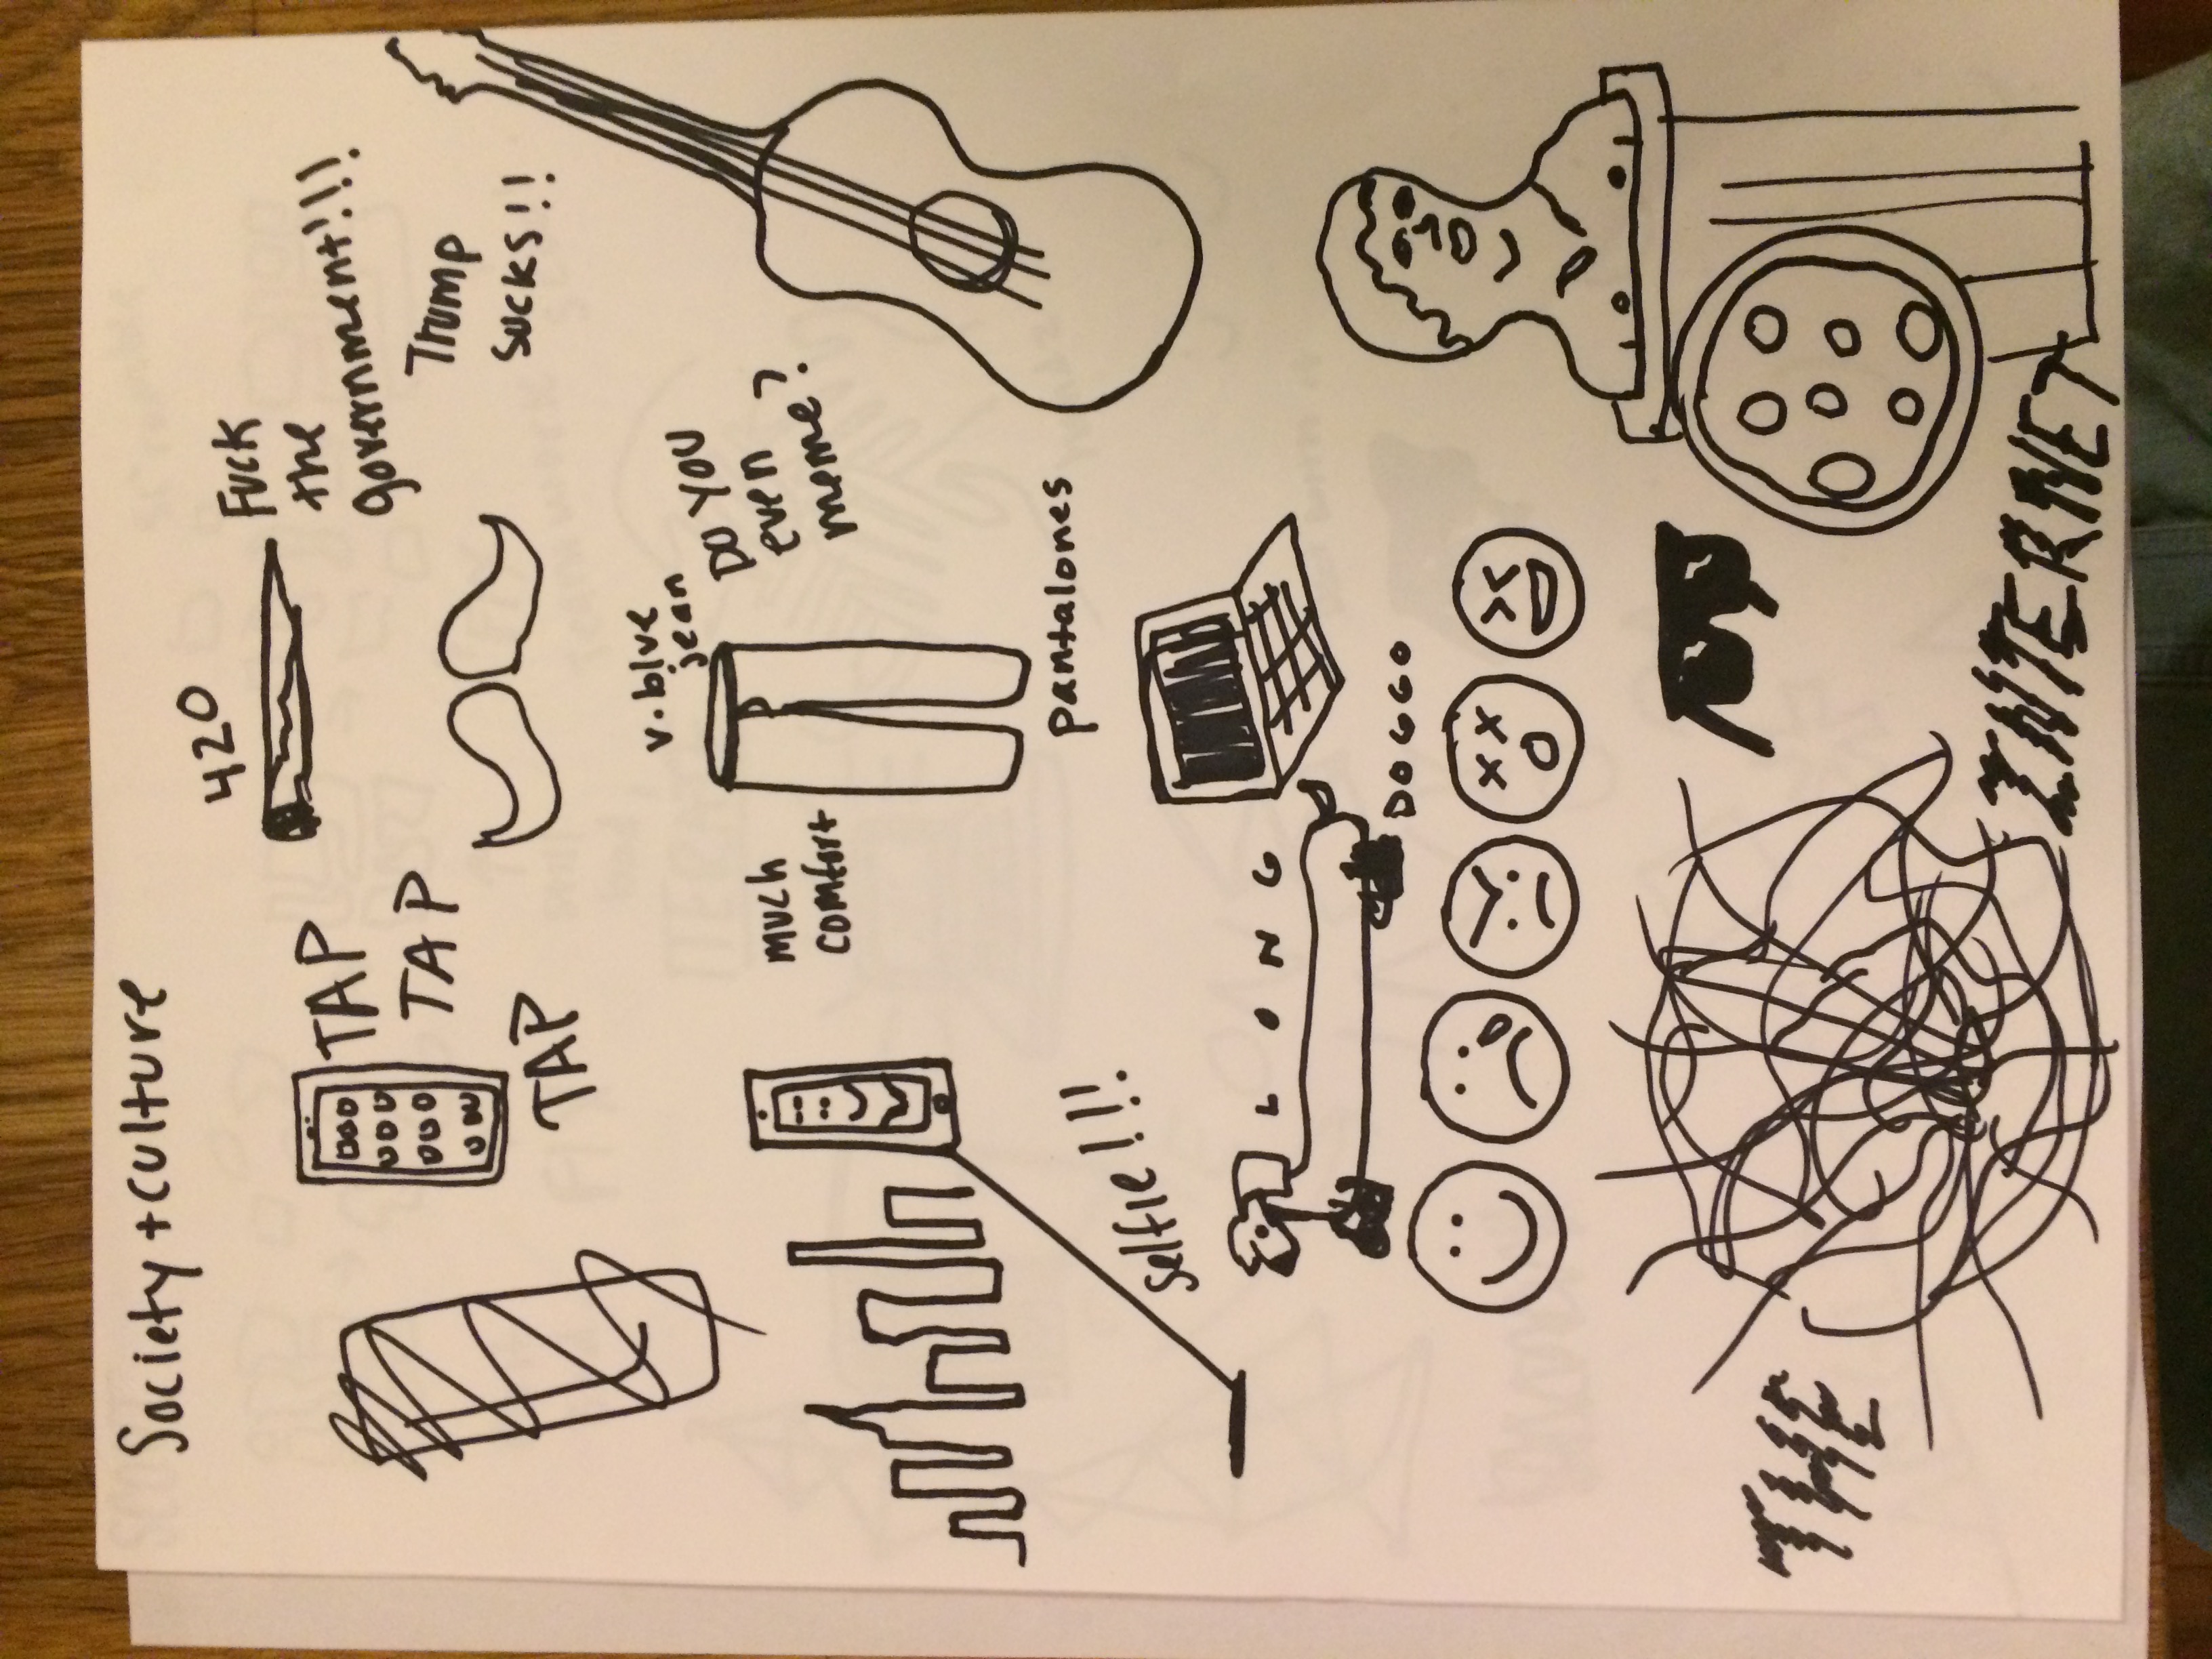 Society + culture
420
Fuck
the
government!!!
TAP
TAP
TAP
Trump
sucks!!
v. blue
jean
much
comfort
DO YOU
even
meme?
pantalones
selfie!!!
LONG
DOGGO
THE
INTERNET